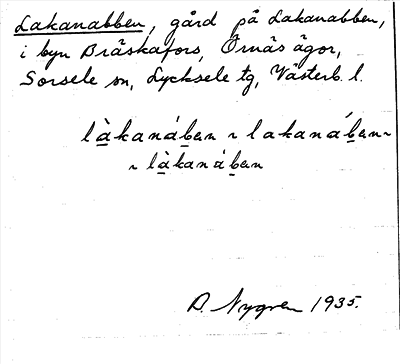 Lakanabben, gård på Lakanabben,
i byn Bräskafors, Örnäs ägor,
Sorsele sn, Lycksele tg, Västerb. l.
là̱kaná́ḇen ~ lakanáḇen ~
~ là̱kanáḇen
D. Nygren 1935.